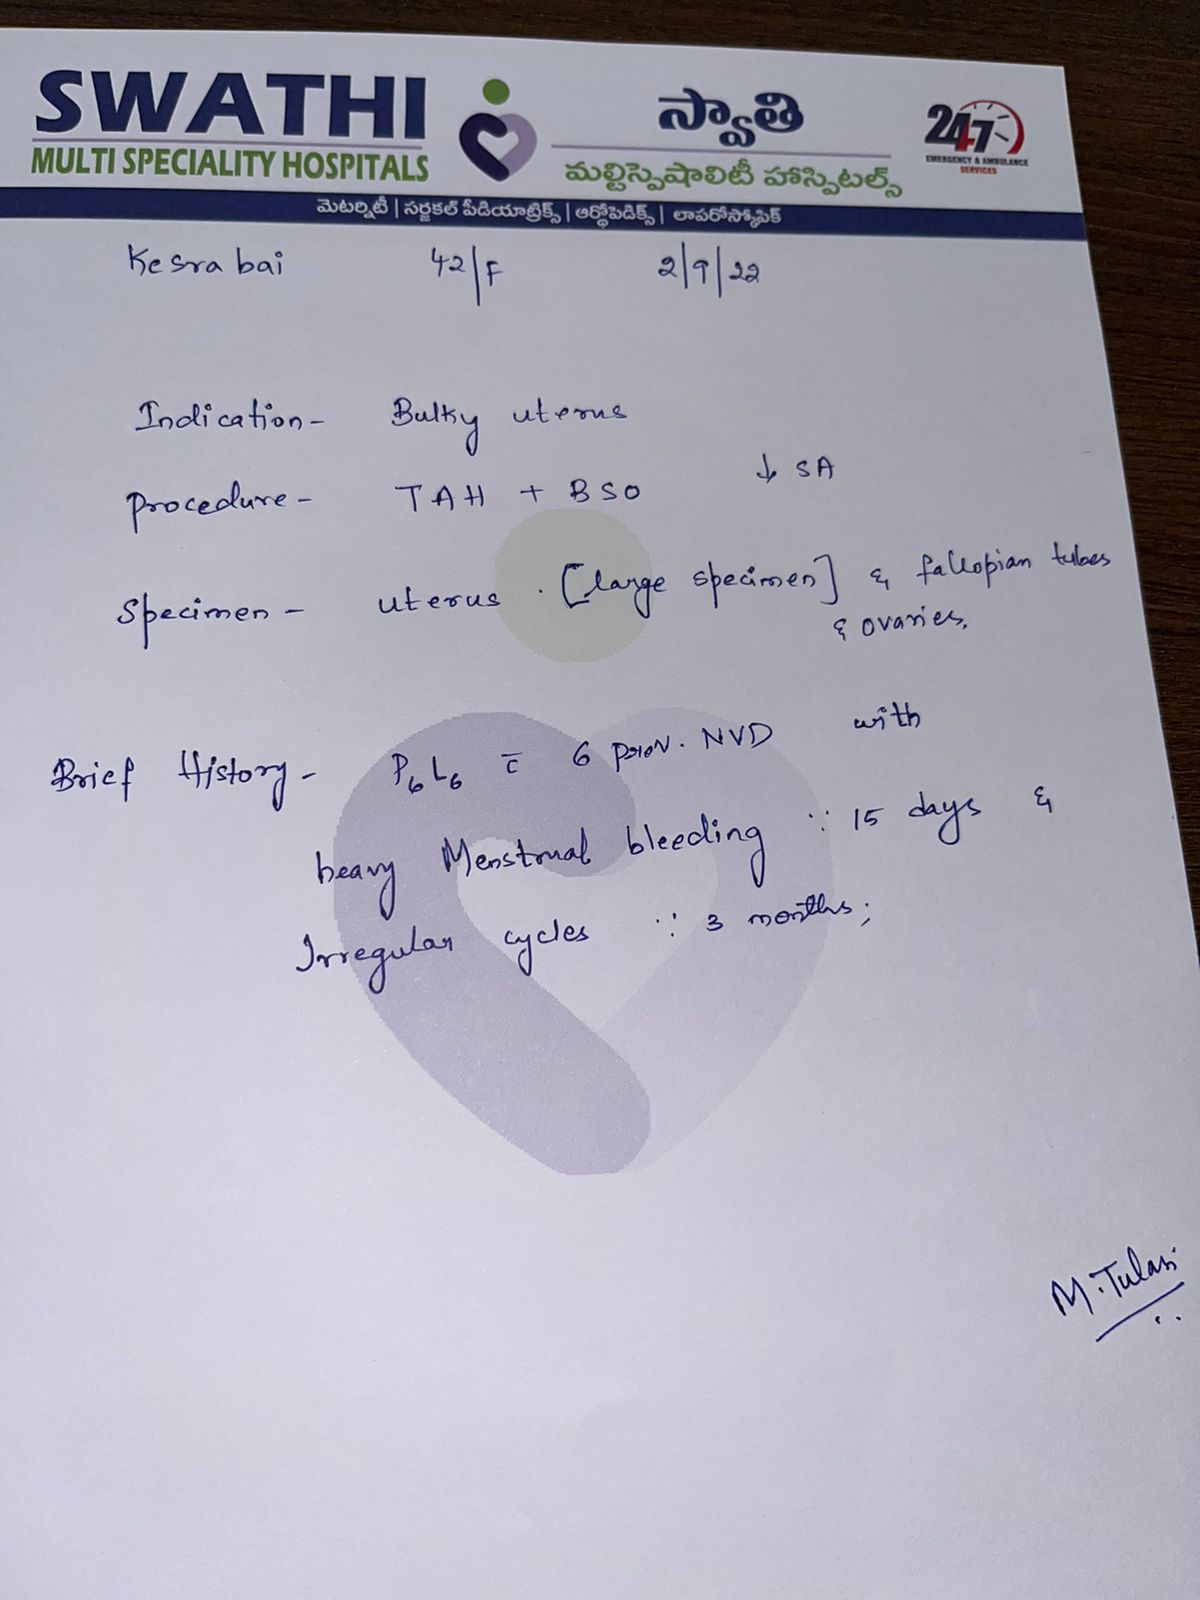 SWATHI
MULTI SPECIALITY HOSPITALS
స్వాతి
మల్టిస్పెషాలిటీ హాస్పిటల్స్
24/7
EMERGENCY & AMBULANCE
SERVICES
మెటర్నిటీ | సర్జికల్ పీడియాట్రిక్స్ | ఆర్థోపెడిక్స్ | లాపరోస్కోపిక్
Kesra bai 42/F 2/9/22
Indication - Bulky uterus
Procedure - TAH + BSO ↓ SA
Specimen - uterus . [large specimen] & fallopian tubes
& ovaries,
Brief History - P₆L₆ c̄ 6 prev. NVD with
heavy Menstrual bleeding ∵ 15 days &
Irregular cycles ∵ 3 months;
M. Tulasi